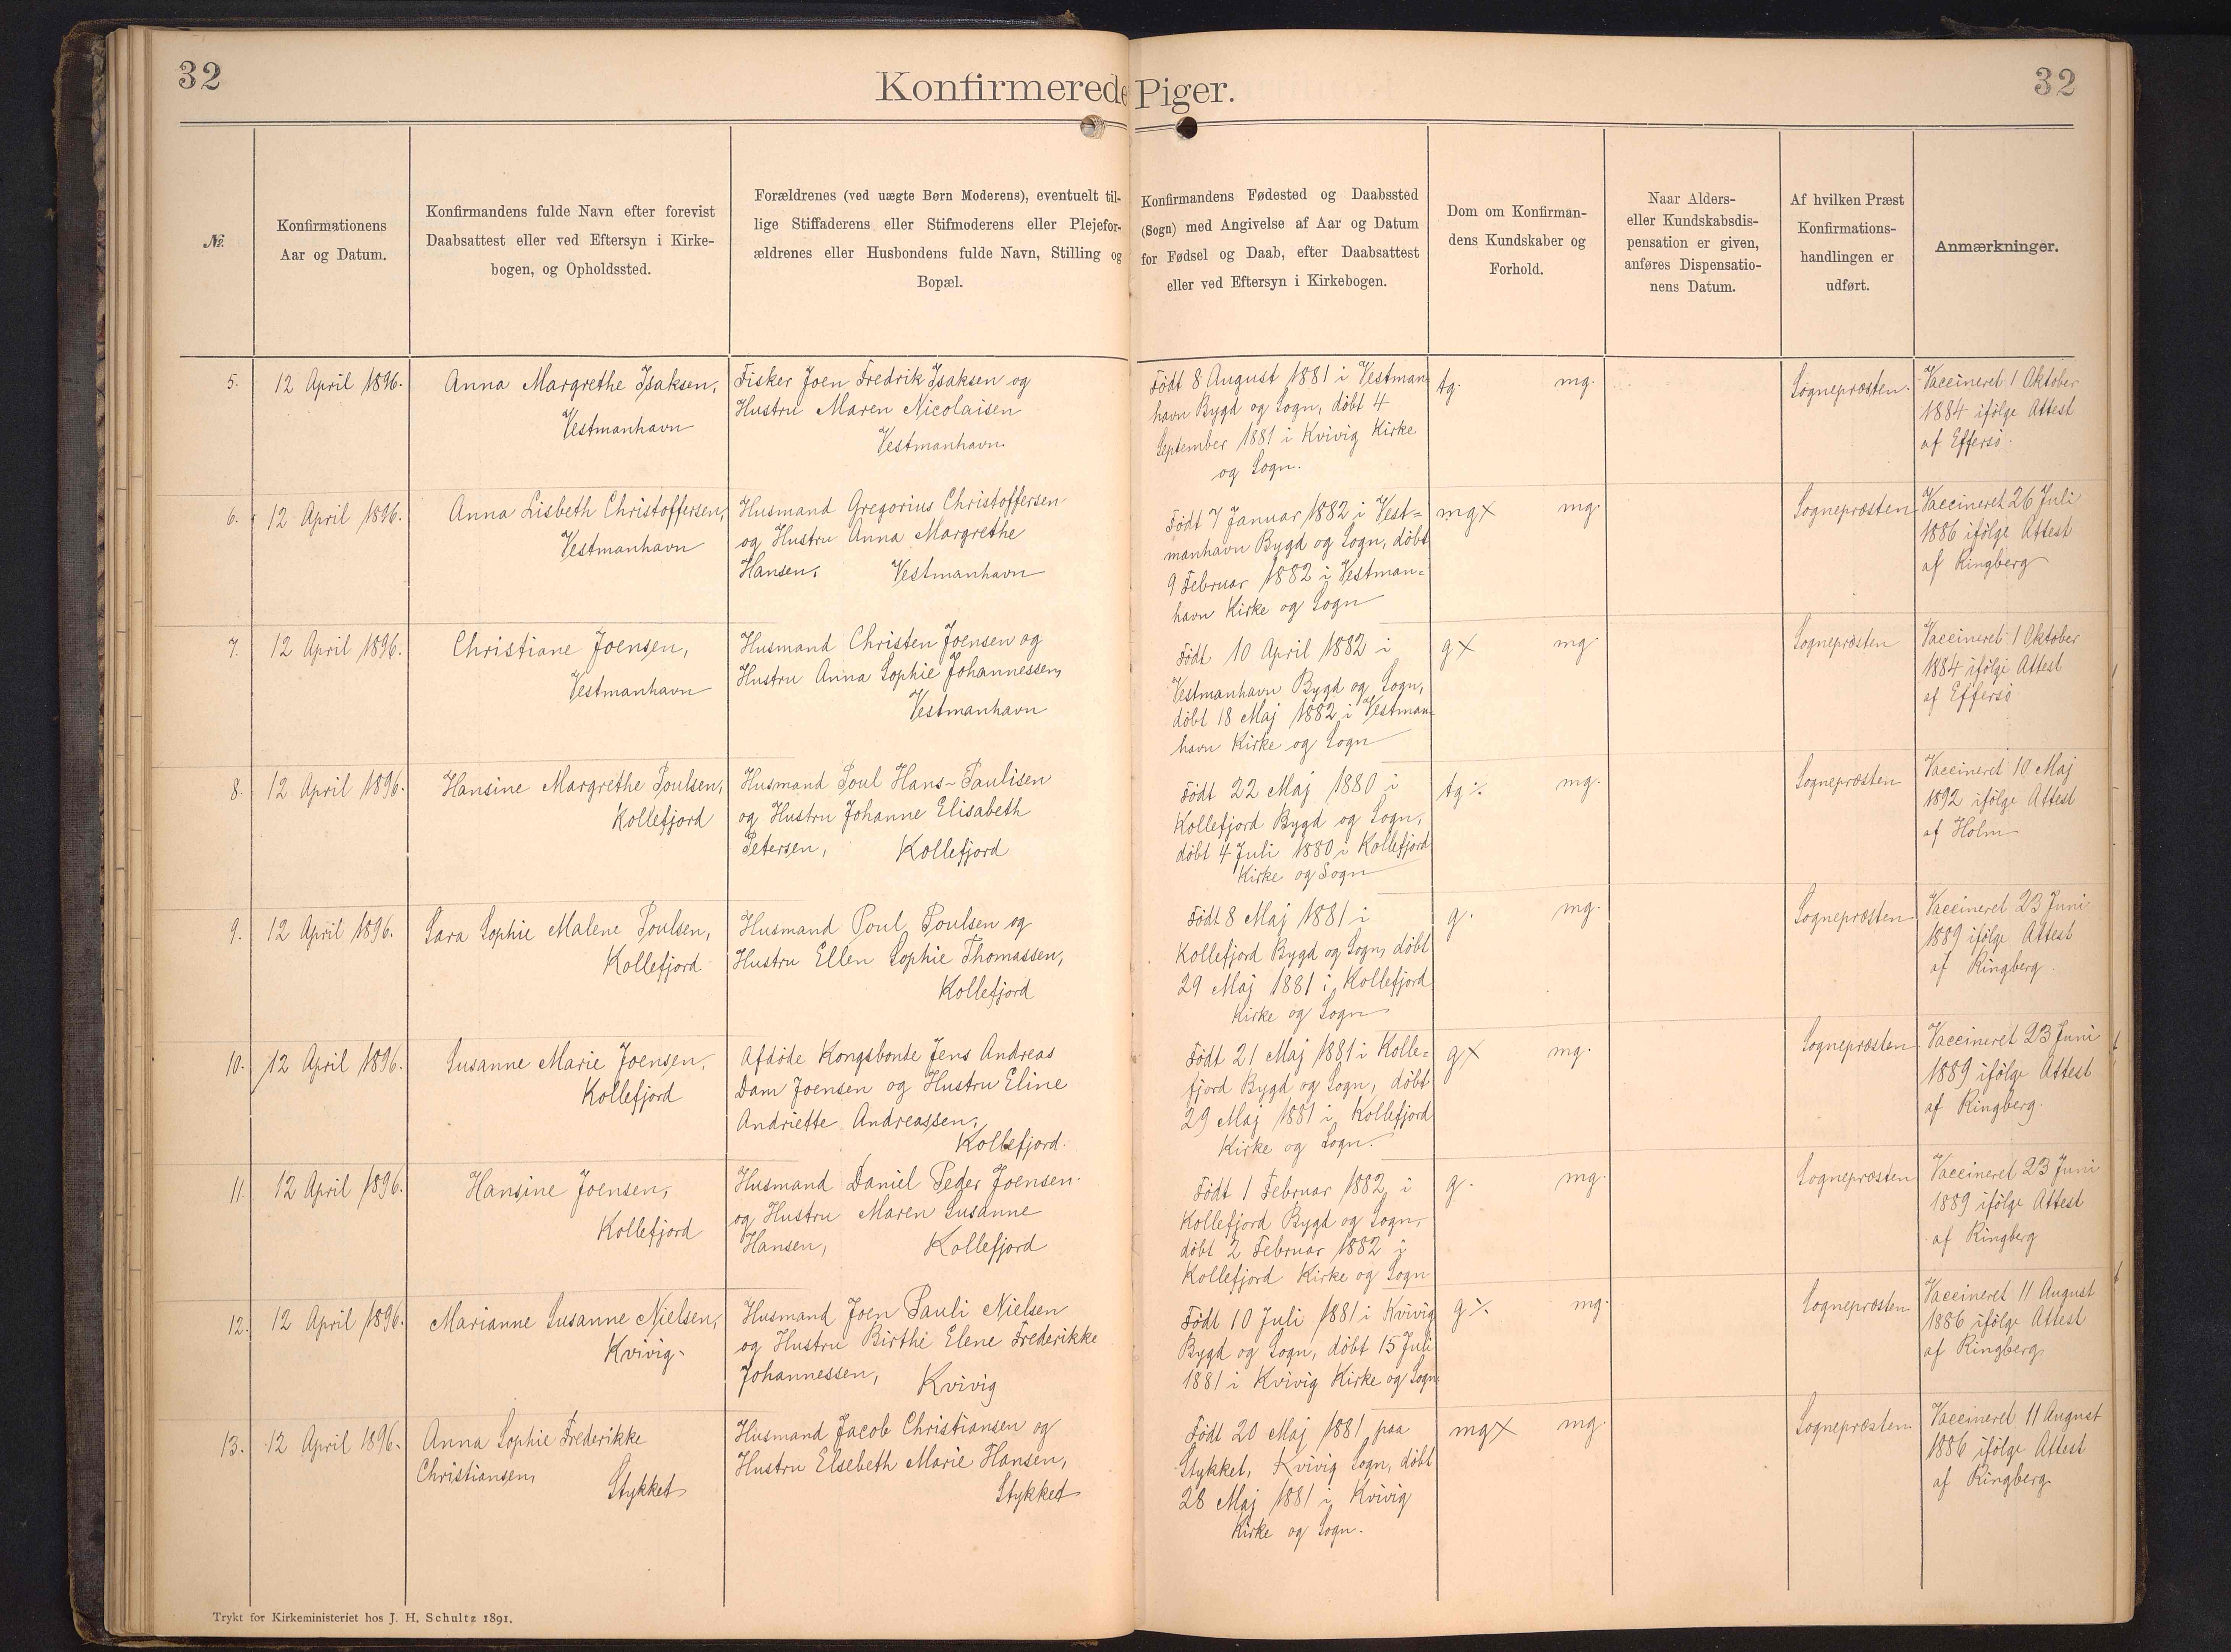 32
Konfirmerede Piger.
32
№.
Konfirmationens
Aar og Datum.
Konfirmandens fulde Navn efter forevist
Daabsattest eller ved Eftersyn i Kirke-
bogen, og Opholdssted.
Forældrenes (ved uægte Børn Moderens), eventuelt til-
lige Stiffaderens eller Stifmoderens eller Plejefor-
ældrenes eller Husbondens fulde Navn, Stilling og
Bopæl.
Konfirmandens Fødested og Daabssted
(Sogn) med Angivelse af Aar og Datum
for Fødsel og Daab, efter Daabsattest
eller ved Eftersyn i Kirkebogen.
Dom om Konfirman-
dens Kundskaber og
Forhold.
Naar Alders-
eller Kundskabsdis-
pensation er given,
anføres Dispensatio-
nens Datum.
Af hvilken Præst
Konfirmations-
handlingen er
udført.
Anmærkninger.
5.
12 April 1896.
Anna Margrethe Isaksen,
Vestmanhavn
Fisker Joen Fredrik Isaksen og
Hustru Maren Nicolaisen
Vestmanhavn.
Födt 8 August 1881 i Vestman-
havn Bygd og Sogn, döbt 4
September 1881 i Kvivig Kirke
og Sogn.
tg. mg.
Sognepræsten.
Vaccineret 1 Oktober
1884 ifölge Attest
af Effersö.
6.
12 April 1896.
Anna Lisbeth Christoffersen,
Vestmanhavn
Husmand Gregorius Christoffersen
og Hustru Anna Margrethe
Hansen, Vestmanhavn
Födt 7 Januar 1882 i Vest=
manhavn Bygd og Sogn, döbt
9 Februar 1882 i Vestman=
havn Kirke og Sogn
mg× mg.
Sognepræsten
Vaccineret 26 Juli
1886 ifölge Attest
af Ringberg
7.
12 April 1896.
Christiane Joensen,
Vestmanhavn
Husmand Christen Joensen og
Hustru Anna Sophie Johannessen,
Vestmanhavn
Födt 10 April 1882 i
Vestmanhavn Bygd og Sogn,
döbt 18 Maj 1882 i Vestman=
havn Kirke og Sogn
g× mg.
Sognepræsten
Vaccineret 1 Oktober
1884 ifölge Attest
af Effersö
8.
12 April 1896.
Hansine Margrethe Poulsen,
Kollefjord
Husmand Poul Hans-Paulisen
og Hustru Johanne Elisabeth
Petersen, Kollefjord
Födt 22 Maj 1880 i
Kollefjord Bygd og Sogn,
döbt 4 Juli 1880 i Kollefjord
Kirke og Sogn
tg ÷ mg.
Sognepræsten
Vaccineret 10 Maj
1892 ifölge Attest
af Holm
9.
12 April 1896.
Sara Sophie Malene Poulsen,
Kollefjord
Husmand Poul Poulsen og
Hustru Ellen Sophie Thomassen,
Kollefjord
Födt 8 Maj 1881 i
Kollefjord Bygd og Sogn, döbt
29 Maj 1881 i Kollefjord
Kirke og Sogn
g. mg.
Sognepræsten
Vaccineret 23 Juni
1889 ifölge Attest
af Ringberg
10.
12 April 1896.
Susanne Marie Joensen,
Kollefjord
Afdöde Kongsbonde Jens Andreas
Dam Joensen og Hustru Eline
Andriette Andreassen,
Kollefjord.
Födt 21 Maj 1881 i Kolle=
fjord Bygd og Sogn, döbt
29 Maj 1881 i Kollefjord
Kirke og Sogn.
g× mg.
Sognepræsten
Vaccineret 23 Juni
1889 ifölge Attest
af Ringberg.
11.
12 April 1896.
Hansine Joensen,
Kollefjord
Husmand Daniel Peder Joensen
og Hustru Maren Susanne
Hansen, Kollefjord
Födt 1 Februar 1882 i
Kollefjord Bygd og Sogn,
döbt 2 Februar 1882 i
Kollefjord Kirke og Sogn
g. mg.
Sognepræsten
Vaccineret 23 Juni
1889 ifölge Attest
af Ringberg
12.
12 April 1896.
Marianne Susanne Nielsen,
Kvivig.
Husmand Joen Pauli Nielsen
og Hustru Birthe Elene Frederikke
Johannessen, Kvivig
Födt 10 Juli 1881 i Kvivig
Bygd og Sogn, döbt 15 Juli
1881 i Kvivig Kirke og Sogn
g ÷ mg.
Sognepræsten
Vaccineret 11 August
1886 ifölge Attest
af Ringberg
13.
12 April 1896.
Anna Sophie Frederikke
Christiansen,
Stykket
Husmand Jacob Christiansen og
Hustru Elsebeth Marie Hansen,
Stykket
Födt 20 Maj 1881 paa
Stykket, Kvivig Sogn, döbt
28 Maj 1881 i Kvivig
Kirke og Sogn.
mg× mg.
Sognepræsten
Vaccineret 11 August
1886 ifölge Attest
af Ringberg
Trykt for Kirkeministeriet hos J. H. Schultz 1891.